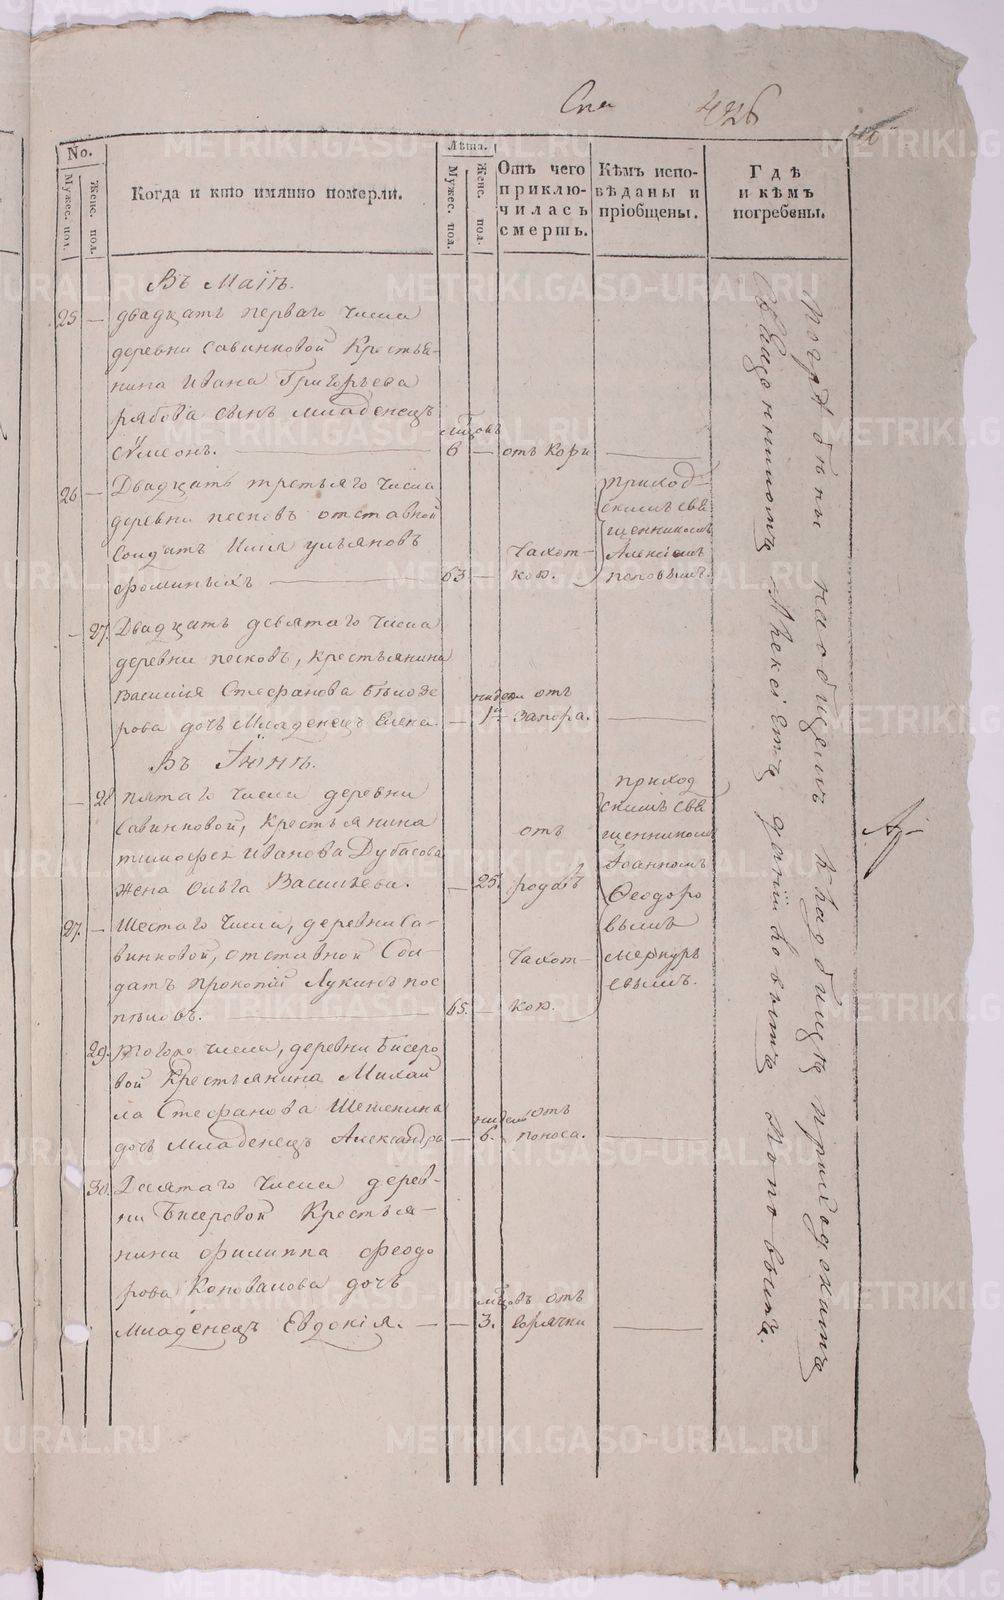 426
No.
Мужес. пол.
Женс. пол.
Когда и кто имянно померли.
Лѣта.
Мужес. пол.
Женс. пол.
Отъ чего приклю-чилась смерть.
Кѣмъ испо-вѣданы и пріобщены.
Гдѣ и кѣмъ погребены.
Въ Маіѣ.
25 — двадцать перваго числа
деревни Савинковой Крестья-
нина Ивана Григорьева
рябова сынъ младенецъ
Сумеонъ. — 6 — отъ Кори —
26 — Двадцать третьяго числа
деревни песковъ отставной
Солдатъ Илія ульяновъ
фоминыхъ — 63 — Чахот-
кою.
приход-
скимъ свя
щенникомъ
Алексіемъ
поповымъ.
— 27. Двадцать девятаго числа
деревни песковъ, крестьянина
Василія Стефанова Бѣлозе
рова дочь Младенецъ Елена. — 1 отъ
Запора. —
Въ Іюнѣ.
— 28 пятаго числа деревни
Савинковой, Крестьянина
тимофея Иванова Дубасова
жена Ольга Васильева. — 25. отъ
родовъ
приход
скимъ свя
щенникомъ
Іоанномъ
Феодоро
вымъ
меркурь
евымъ.
27. — Шестаго числа, деревни Са-
винковой, отставной Сол-
датъ прокопій Лукинъ пос
пѣловъ. 65. — Чахот-
кою.
29. того же числа, деревни Бисеро
вой Крестьянина Михай
ла Стефанова Шепелина
дочь младенецъ Александра — 6. отъ
поноса. —
30. Десятаго числа дерев-
ни Бисеровой Крестья-
нина филиппа феодо
рова Коновалова дочь
Младенецъ Евдокія. — — 3. отъ
горячки —
погребены на общемъ кладбищѣ приходскимъ
Священникомъ Алексіемъ Поповымъ.
METRIKI.GASO-URAL.RU